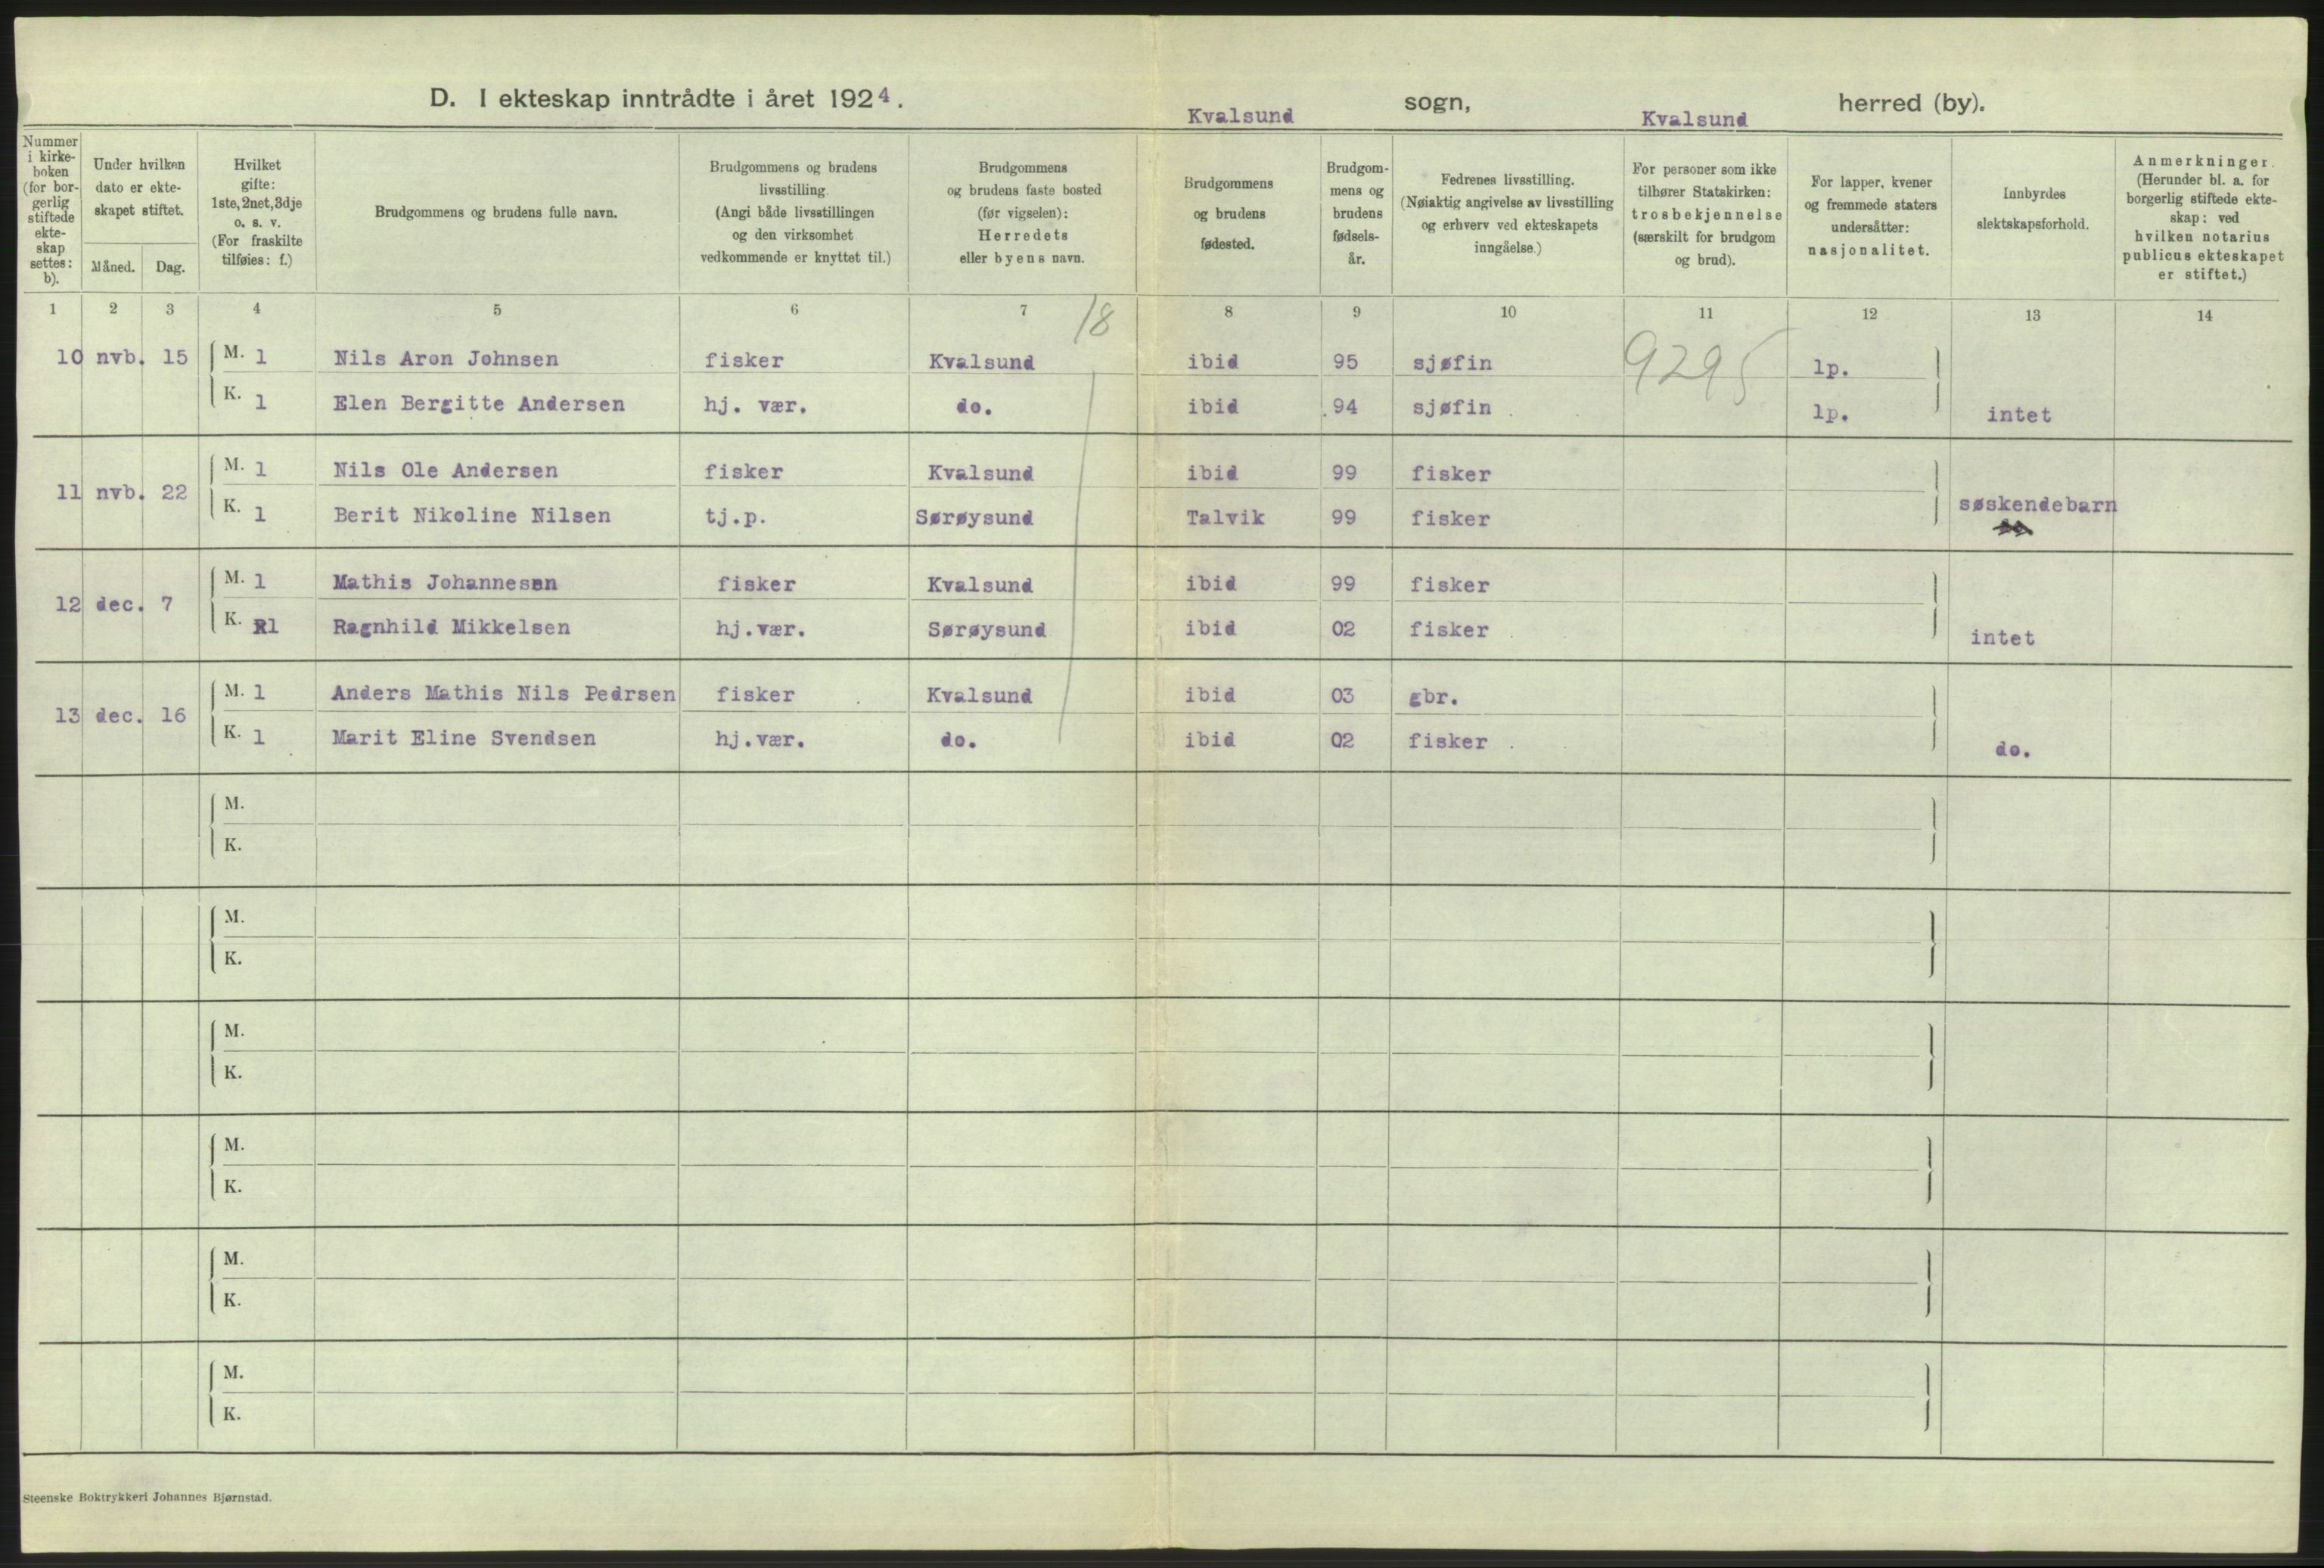 D. I ekteskap inntrådte i året 1924.
Kvalsund sogn, Kvalsund herred (by).
Nummer
i kirke-
boken
(for bor-
gerlig
stiftede
ekte-
skap
settes:
b).
Under hvilken
dato er ekte-
skapet stiftet.
Måned. Dag.
Hvilket
gifte:
1ste, 2net, 3dje
o. s. v.
(For fraskilte
tilføies: f.)
Brudgommens og brudens fulle navn.
Brudgommens og brudens
livsstilling.
(Angi både livsstillingen
og den virksomhet
vedkommende er knyttet til.)
Brudgommens
og brudens faste bosted
(før vigselen):
Herredets
eller byens navn.
Brudgommens
og brudens
fødested.
Brudgom-
mens og
brudens
fødsels-
år.
Fedrenes livsstilling.
(Nøiaktig angivelse av livsstilling
og erhverv ved ekteskapets
inngåelse.)
For personer som ikke
tilhører Statskirken:
trosbekjennelse
(særskilt for brudgom
og brud).
For lapper, kvener
og fremmede staters
undersåtter:
nasjonalitet.
Innbyrdes
slektskapsforhold.
Anmerkninger.
(Herunder bl. a. for
borgerlig stiftede ekte-
skap: ved
hvilken notarius
publicus ekteskapet
er stiftet.)
1 2 3 4 5 6 7 8 9 10 11 12 13 14
18
9295
10 nvb. 15 M. 1 Nils Aron Johnsen fisker Kvalsund ibid 95 sjøfin lp.
K. 1 Elen Bergitte Andersen hj. vær. do. ibid 94 sjøfin lp. intet
11 nvb. 22 M. 1 Nils Ole Andersen fisker Kvalsund ibid 99 fisker
K. 1 Berit Nikoline Nilsen tj.p. Sørøysund Talvik 99 fisker søskendebarn
12 dec. 7 M. 1 Mathis Johannesen fisker Kvalsund ibid 99 fisker
K. 1 Ragnhild Mikkelsen hj.vær. Sørøysund ibid 02 fisker intet
13 dec. 16 M. 1 Anders Mathis Nils Pedrsen fisker Kvalsund ibid 03 gbr.
K. 1 Marit Eline Svendsen hj.vær. do. ibid 02 fisker do.
M.
K.
M.
K.
M.
K.
M.
K.
M.
K.
M.
K.
Steenske Boktrykkeri Johannes Bjørnstad.